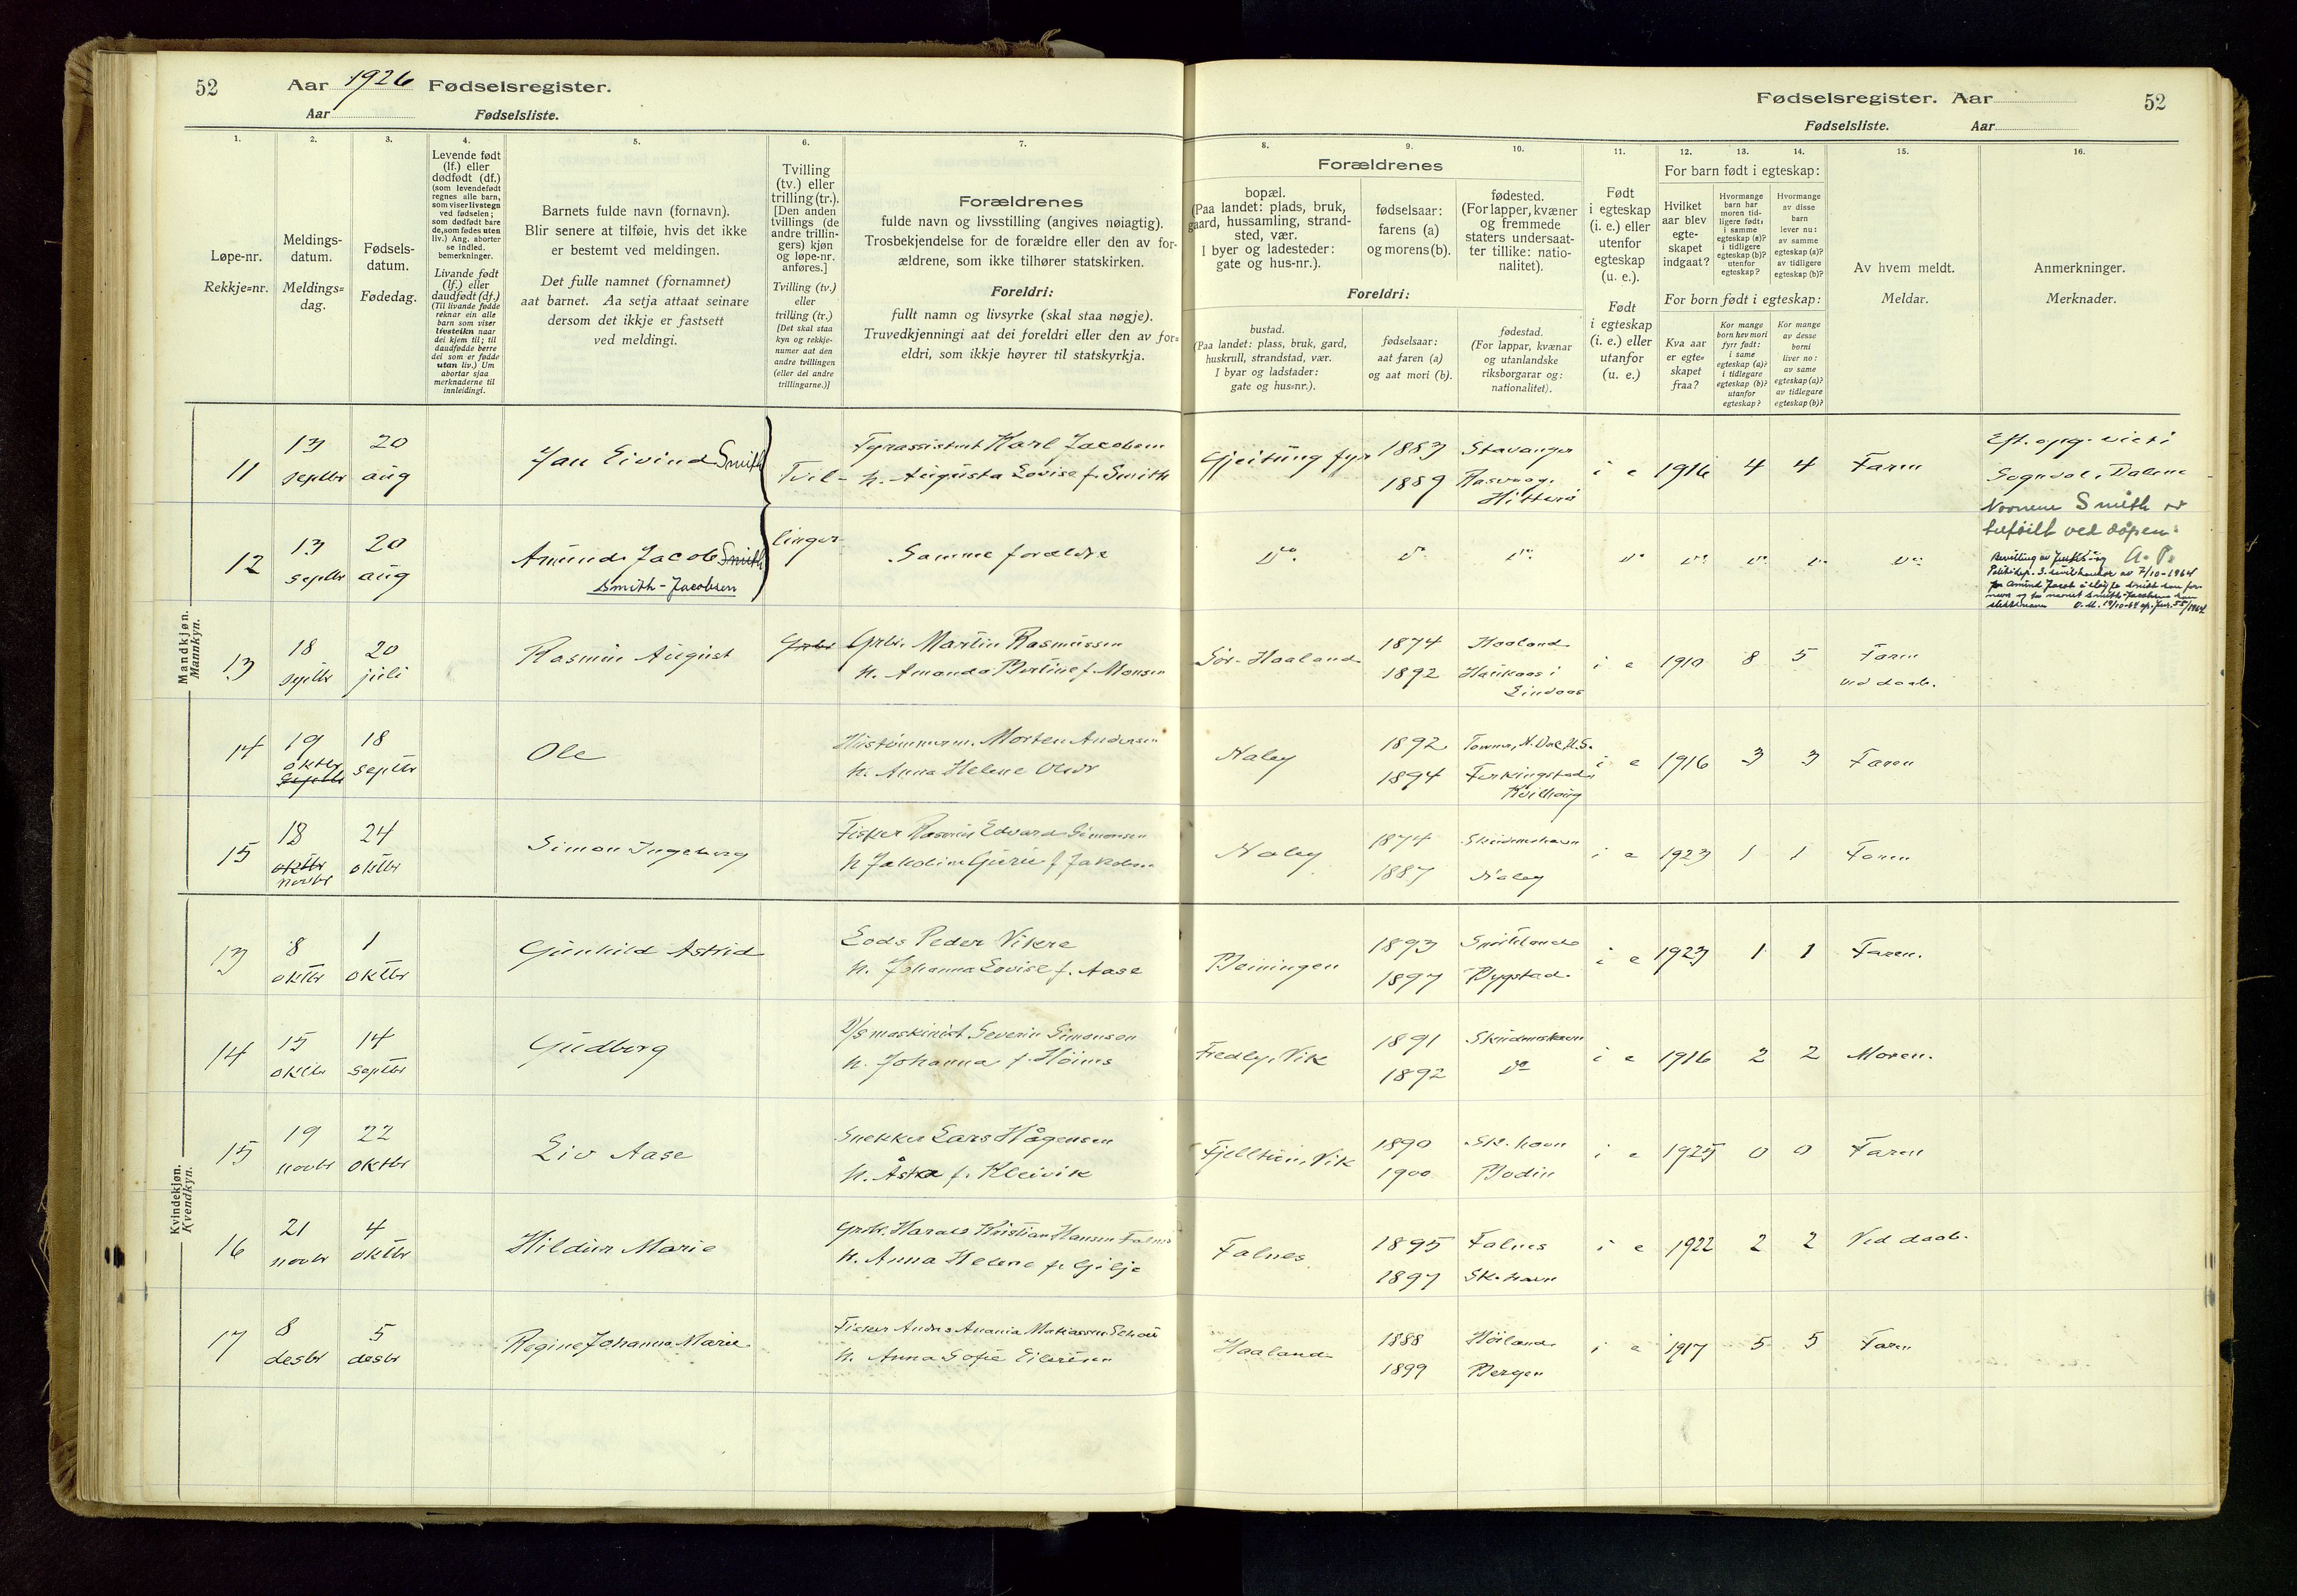 52
Aar 1926 Fødselsregister.
Aar Fødselsliste.
1.
2.
3.
4.
5.
6.
7.
Løpe-nr.
Rekkje=nr.
Meldings-
datum.
Meldings=
dag.
Fødsels-
datum.
Fødedag.
Levende født
(lf.) eller
dødfødt (df.)
(som levendefødt
regnes alle barn,
som viser livstegn
ved fødselen;
som dødfødt bare
de, som fødes uten
liv.) Ang. aborter
se indled.
bemerkninger.
Livande født
(lf.) eller
daudfødt (df.)
(Til livande fødde
reknar ein alle
barn som viser
livsteikn naar
dei kjem til; til
daudfødde berre
dei som er fødde
utan liv.) Um
abortar sjaa
merknaderne til
innleidingi.
Barnets fulde navn (fornavn).
Blir senere at tilføie, hvis det ikke
er bestemt ved meldingen.
Det fulle namnet (fornamnet)
aat barnet. Aa setja attaat seinare
dersom det ikkje er fastsett
ved meldingi.
Tvilling
(tv.) eller
trilling (tr.).
[Den anden
tvillings (de
andre trillin-
gers) kjøn
og løpe-nr.
anføres.]
Tvilling (tv.)
eller
trilling (tr.)
[Det skal staa
kyn og rekkje-
numer aat den
andre tvillingen
(eller dei andre
trillingarne.)]
Forældrenes
fulde navn og livsstilling (angives nøiagtig).
Trosbekjendelse for de forældre eller den av for-
ældrene, som ikke tilhører statskirken.
Foreldri:
fullt namn og livsyrke (skal staa nøgje).
Truvedkjenningi aat dei foreldri eller den av for=
eldri, som ikkje høyrer til statskyrkja.
Fødselsregister. Aar
52
Fødselsliste. Aar
8.
9.
10.
11.
12.
13.
14.
15.
16.
Forældrenes
bopæl.
(Paa landet: plads, bruk,
gaard, hussamling, strand-
sted, vær.
I byer og ladesteder:
gate og hus-nr.).
fødselsaar:
farens (a)
og morens (b).
fødested.
(For lapper, kvæner
og fremmede
staters undersaat-
ter tillike: natio-
nalitet).
Foreldri:
bustad.
(Paa landet: plass, bruk, gard,
huskrull, strandstad, vær.
I byar og ladstader:
gate og hus=nr.).
fødselsaar:
aat faren (a)
og aat mori (b).
fødestad.
(For lappar, kvænar
og utanlandske
riksborgarar og:
nationalitet).
Født
i egteskap
(i. e.) eller
utenfor
egteskap
(u. e.).
Født
i egteskap
(i. e.) eller
utanfor
(u. e.)
For barn født i egteskap:
Hvilket
aar blev
egte-
skapet
indgaat?
Hvormange
barn har
moren tid-
ligere født:
i samme
egteskap (a)?
i tidligere
egteskap (b)?
utenfor
egteskap?
Hvormange
av disse
barn
lever nu:
av samme
egteskap (a)?
av tidligere
egteskap (b)?
For born født i egteskap:
Kva aar
er egte=
skapet
fraa?
Kor mange
born hev mori
fyrr født:
i same
egteskap (a)?
i tidlegare
egteskap (b)?
utanfor
egteskap?
Kor mange
av desse
borni
liver no:
av same
egteskap (a)?
av tidlegare
egteskap (b)?
Av hvem meldt.
Meldar.
Anmerkninger.
Merknader.
Mandkjøn.
Mannkyn.
11 13 septbr 20 aug Jan Eivind Smith Tvil- Fyrassistent Karl Jacobsen
h. Augusta Lovise f. Smith
Gjeitung fyr 1883 Stavanger i e 1916 4 4 Faren
1889 Rasvaag, Hitterø
Sogndal i Dalene
Navnene Smith er
tilføilt ved dåpen.
12 13 septbr 20 aug Amund Jacob Smith linger Samme foreldre
Smith-Jacobsen
Do. Do Do. Do Do. Do. Do. Do.
13 18 septbr 20 juli Rasmus August Grbr. Grbr. Martin Rasmussen
h. Amanda Bertine f. Monsen
Sør-Haaland 1874 Haaland i e 1910 8 5 Faren
1892 Haukaas i Lindaas ved daab.
14 19 oktbr septbr 18 septbr Ole Hustømmerm. Morten Andersen
h. Anna Helene Olsdr
Naley 1892 i e 1916 3 3 Faren
1894 Ferkingstad
15 18 oktbr novbr 24 oktbr Simon Ingeborg Fisker Rasmus Edvard Simonsen
h. Jakobine Guri f. Jakobsen
Naley 1874 Skudeneshavn i e 1923 1 1 Faren
1887 Naley
Kvindekjøn.
Kvendkyn.
13 8 oktbr 1 oktbr Gunhild Astrid Lods Peder Vikre
h. Johanna Lovise f. Aase
Beiningen 1893 i e 1923 1 1 Faren.
1897 Bygstad
14 15 oktbr 14 septbr Gudborg D/s maskinist Severin Simonsen
h. Johanna f. Høines
Fredly, Vik 1891 Skudeneshavn i e 1916 2 2 Moren.
1892 Do
15 19 novbr 22 oktbr Liv Aase Snekker Lars Hågensen
h. Åsta f. Kleivik
Fjelltun, Vik 1890 Sk.havn i e 1925 0 0 Faren
1900 Bodin
16 21 novbr 4 oktbr Hildur Marie Grbr. Harald Kristian Hansen Falnes
h. Anna Helene f. Gilje
Falnes 1895 Falnes i e 1922 2 2 Ved daab.
1897 Sk.havn
17 8 desbr 5 desbr Regine Johanna Marie Fisker Andreas Anania Matiassen
h. Anna Sofie Eilertsen
Haaland 1888 Høiland i e 1917 5 5 Faren
1899 Bergen